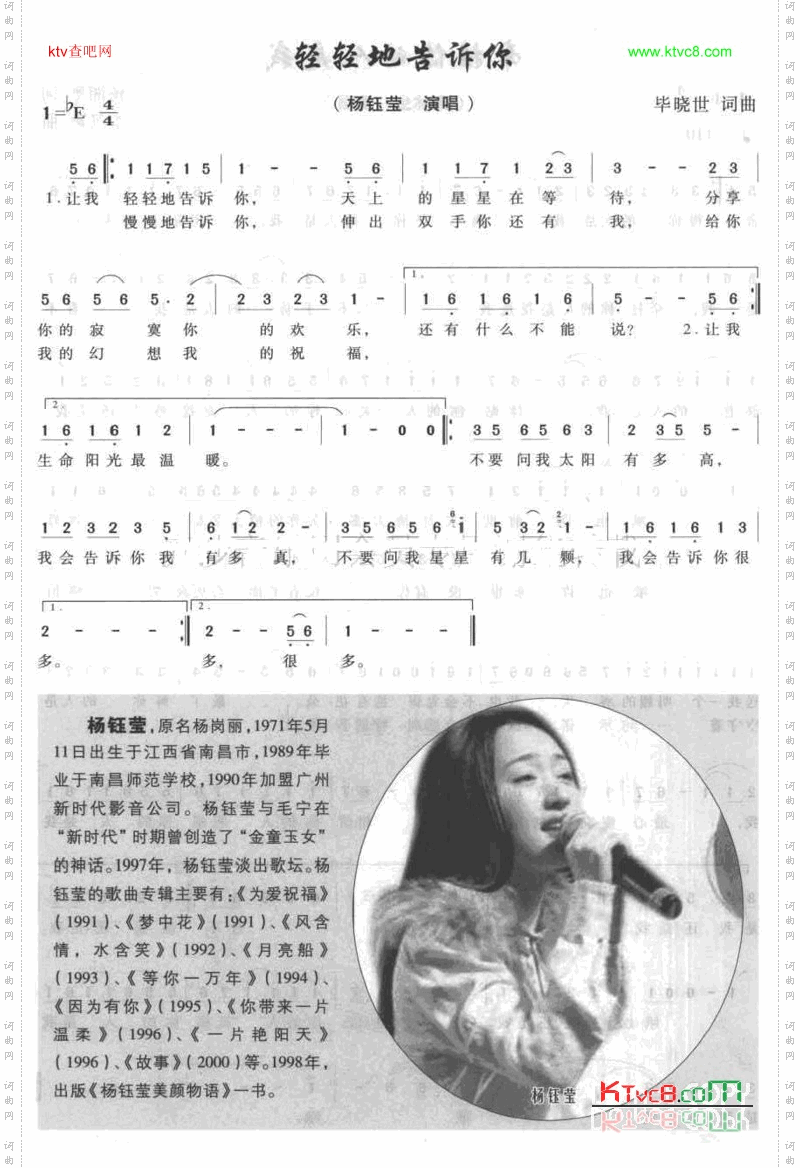 ktv查吧网
轻轻地告诉你
www.ktvc8.com
（杨钰莹 演唱）
1=♭E 4/4
毕晓世 词曲
5 6 ‖: 1 1 7 1 5 | 1 - - 5 6 | 1 1 7 1 2 3 | 3 - - 2 3 |
1.让我 轻轻地告诉 你， 天上 的星星在等 待， 分享
慢慢地告诉 你， 伸出 双手你还有 我， 给你
5 6 5 6 5 · 2 | 2 3 2 3 1 - | 1. 1 6 1 6 1 6 | 5 - - 5 6 :‖
你的寂 寞你 的欢 乐， 还有什么不能 说？ 2.让我
我的幻 想我 的祝 福，
2. 1 6 1 6 1 2 | 1 - - - | 1 - 0 0 ‖: 3 5 6 5 6 3 | 2 3 5 5 - |
生命阳光最温 暖。 不要问我太阳 有多高，
1 2 3 2 3 5 | 6 1 2 2 - | 3 5 6 5 6 1 | 5 3 2 1 - | 1 6 1 6 1 3 |
我会告诉你我 有多真， 不要问我星星 有几颗， 我会告诉你很
1. 2 - - - :‖ 2. 2 - - 5 6 | 1 - - - ‖
多。 多， 很 多。
杨钰莹，原名杨岗丽，1971年5月
11日出生于江西省南昌市，1989年毕
业于南昌师范学校，1990年加盟广州
新时代影音公司。杨钰莹与毛宁在
“新时代”时期曾创造了“金童玉女”
的神话。1997年，杨钰莹淡出歌坛。杨
钰莹的歌曲专辑主要有：《为爱祝福》
（1991）、《梦中花》（1991）、《风含
情，水含笑》（1992）、《月亮船》
（1993）、《等你一万年》（1994）、
《因为有你》（1995）、《你带来一片
温柔》（1996）、《一片艳阳天》
（1996）、《故事》（2000）等。1998年，
出版《杨钰莹美颜物语》一书。
杨钰莹
KTvc8.com